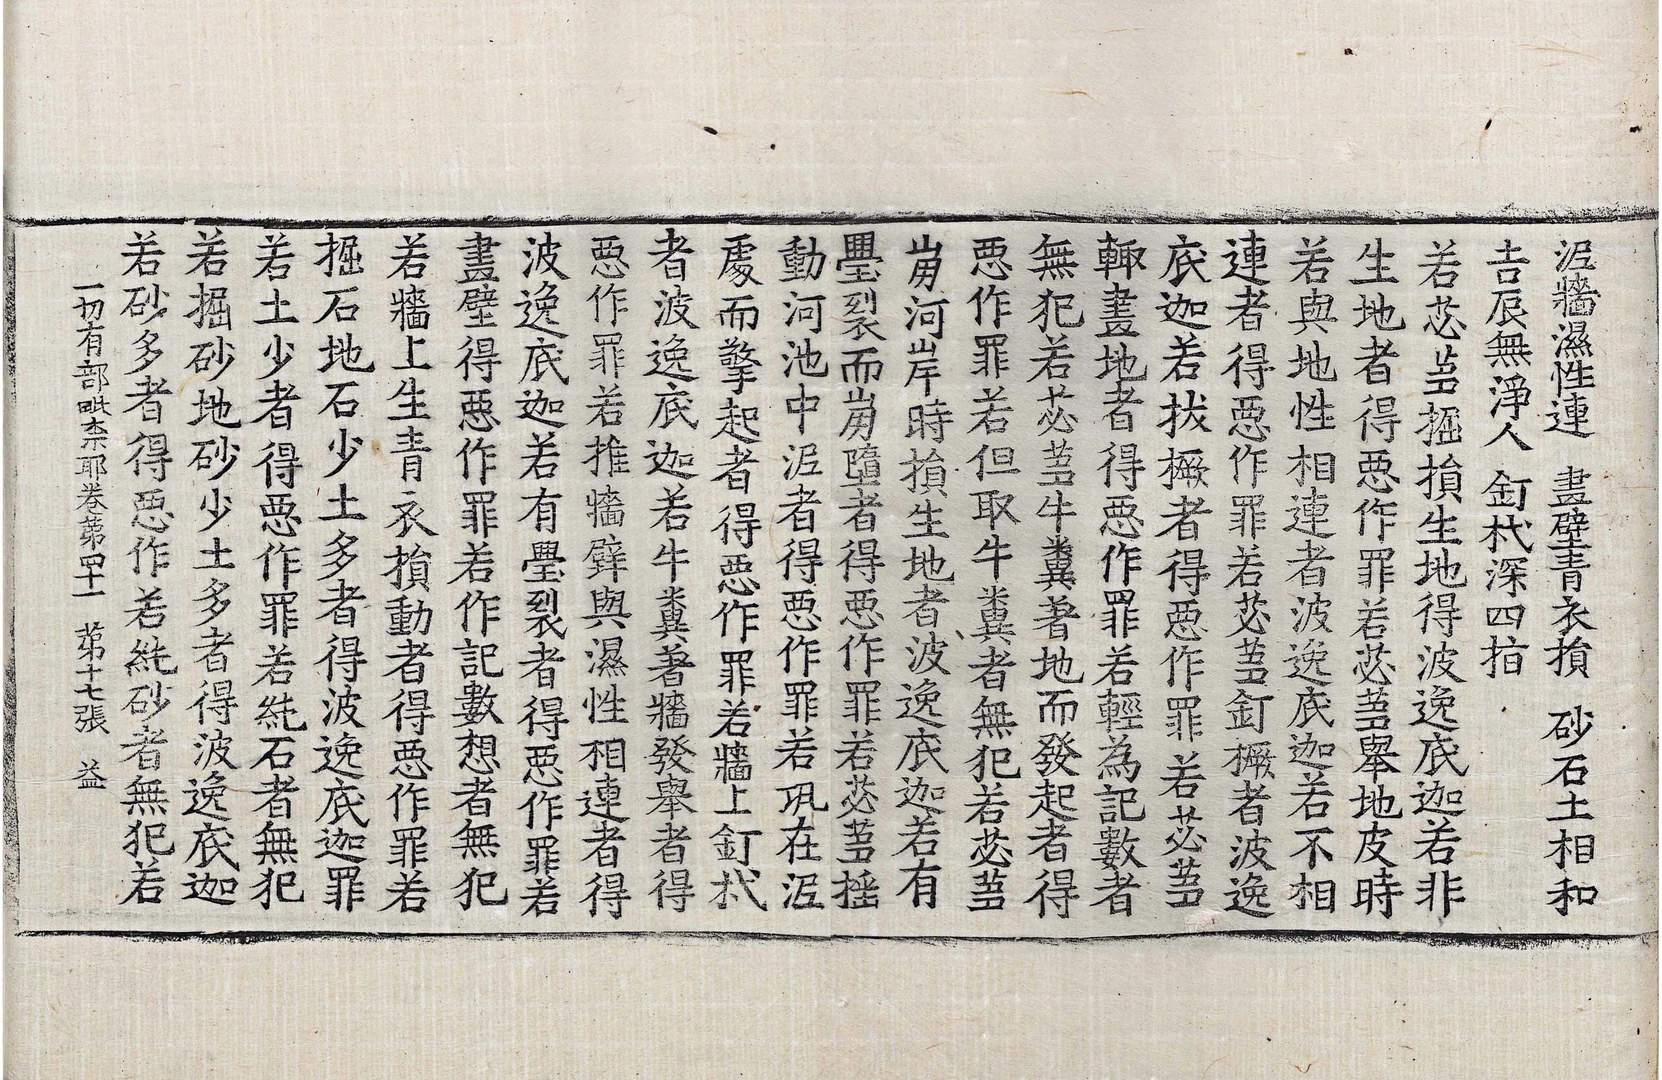 泥牆濕性連　畫壁青衣損　砂石土相和
吉辰無淨人　釘杙深四指
若苾芻掘損生地得波逸底迦若非
生地者得惡作罪若苾芻擧地皮時
若與地性相連者波逸底迦若不相
連者得惡作罪若苾芻釘橛者波逸
底迦若拔橛者得惡作罪若苾芻
輙畫地者得惡作罪若輕為記數者
無犯若苾芻牛糞著地而發起者得
惡作罪若但取牛糞者無犯若苾芻
崩河岸時損生地者波逸底迦若有
璺裂而崩墮者得惡作罪若苾芻搖
動河池中泥者得惡作罪若瓨在泥
處而擎起者得惡作罪若牆上釘杙
者波逸底迦若牛糞著牆發擧者得
惡作罪若推牆壁與濕性相連者得
波逸底迦若有璺裂者得惡作罪若
畫壁得惡作罪若作記數想者無犯
若牆上生青衣損動者得惡作罪若
掘石地石少土多者得波逸底迦罪
若土少者得惡作罪若純石者無犯
若掘砂地砂少土多者得波逸底迦
若砂多者得惡作若純砂者無犯若
一切有部毗柰耶卷第四十一　第十七張　益